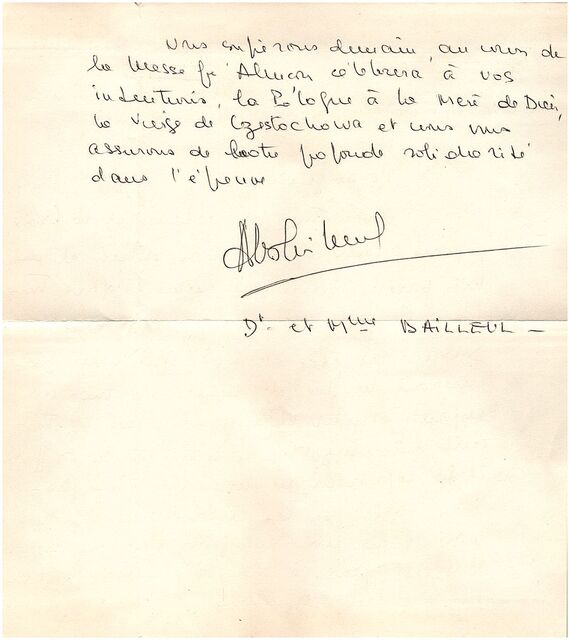 Nous confierons demain, au cours de
la Messe que Alençon célèbrera à vos
intentions, la Pologne à la Mère de Dieu,
la Vierge de Czestochowa et nous vous
assurons de notre profonde solidarité
dans l'épreuve
Dr. et Mme BAILLEUL -